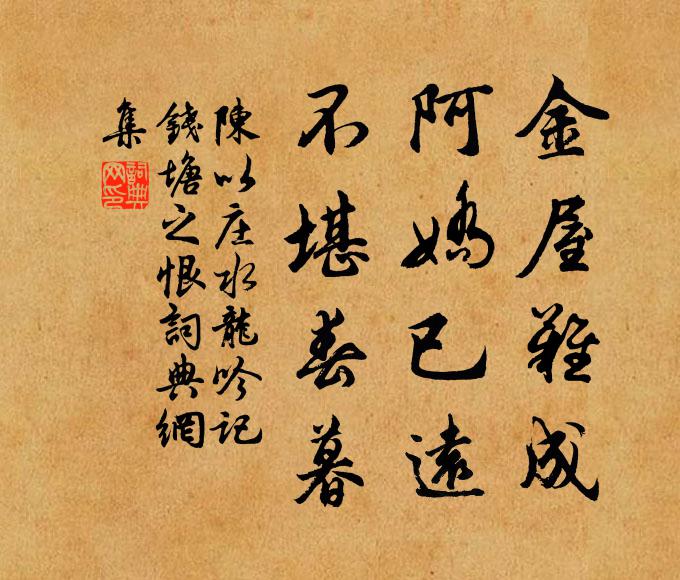 金屋難成
阿嬌已遠
不堪春暮
陳以庄水龍吟記
錢塘之恨詞典網
集
詞典
网印